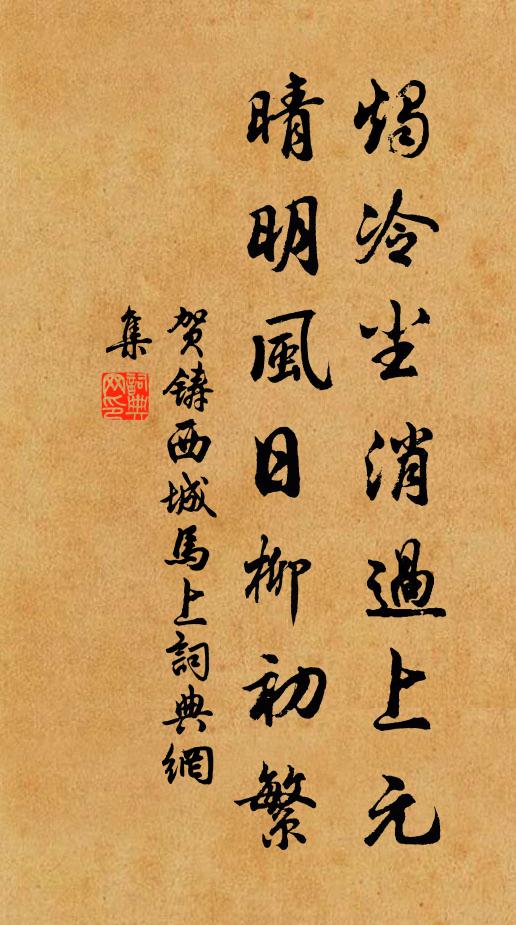 燭冷尘消過上元
晴明風日柳初繁
贺鑄西城馬上詞典網
集
詞典網印